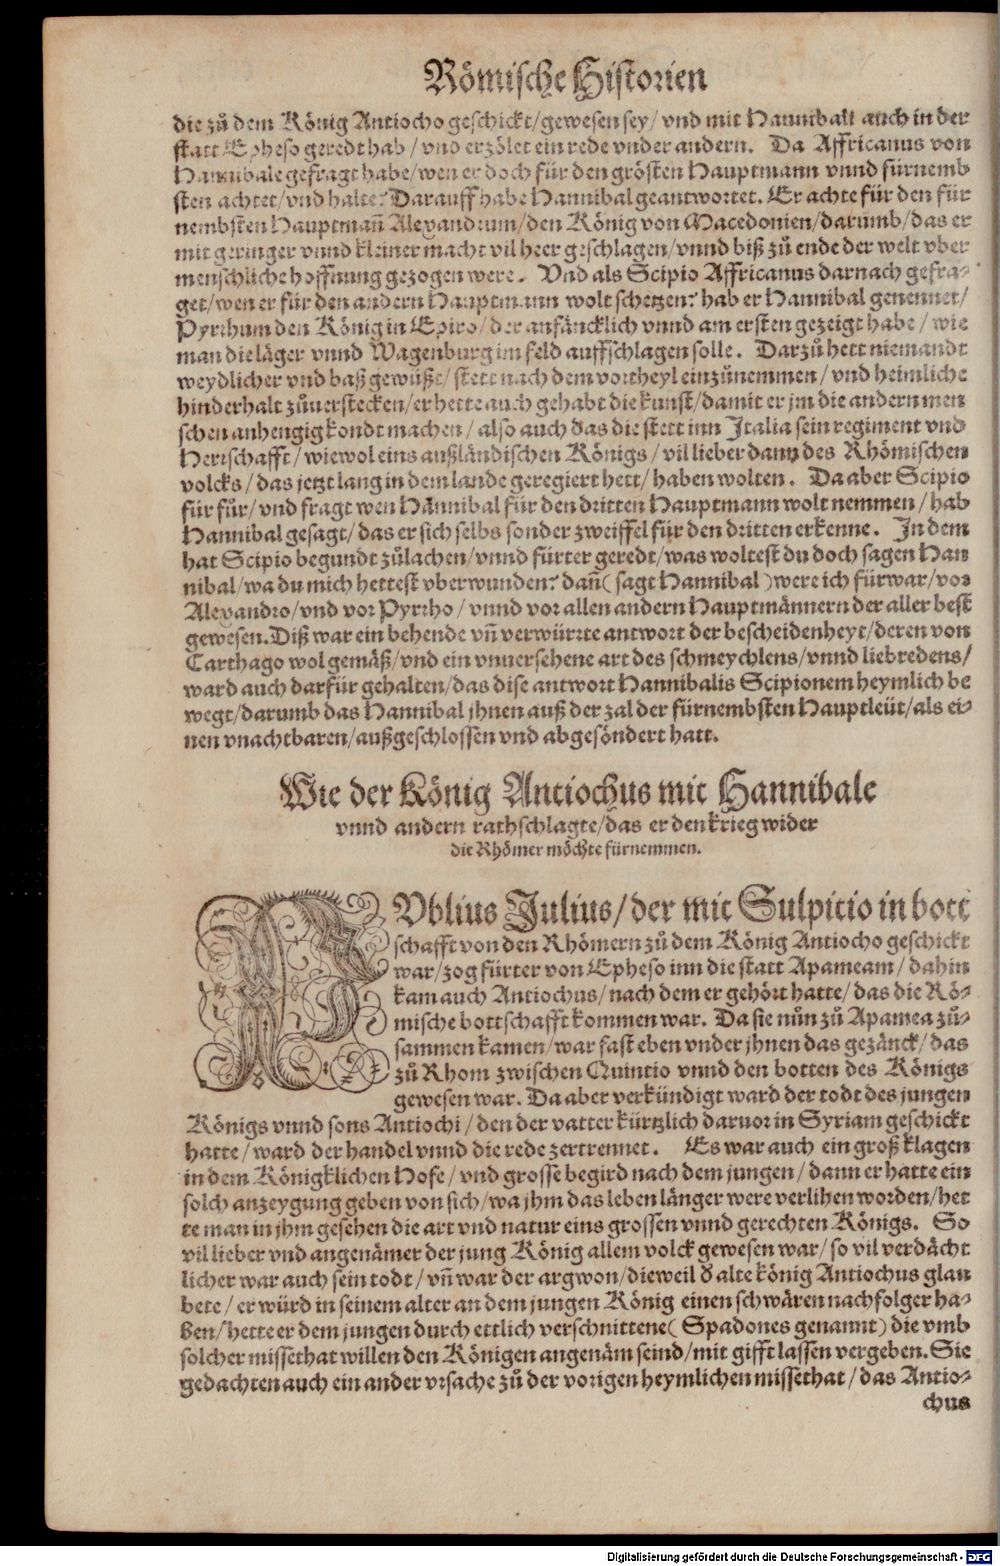 Römische Historien
die zů dem König Antiocho geschickt/gewesen sey/ vnd mit Hannibaln auch in der
statt Epheso geredt hab/ vnd erzölet ein rede vnder andern. Da Affricanus von
Hannibale gefragt habe/wen er doch für den grösten Hauptmann vnnd fürnemb
sten achtet/vnd halte? Darauff habe Hannibal geantwortet. Er achte für den für
nembsten Hauptmañ Alexandrum/den König von Macedonien/darumb/das er
mit geringer vnnd kleiner macht vil heer geschlagen/vnnd biß zů ende der welt vber
menschliche hoffnung gezogen were. Vnd als Scipio Affricanus darnach gefra-
get/wen er für den andern Hauptmann wolt schetzen? hab er Hannibal genennet/
Pyrrhum den König in Epiro/der anfäncklich vnnd am ersten gezeigt habe/ wie
man die läger vnnd Wagenburg im feld auffschlagen solle. Darzů hett niemandt
weydlicher vnd baß gewüßt/ stett nach dem vortheyl einzůnemmen/ vnd heimliche
hinderhalt zůuerstecken/er hette auch gehabt die kunst/damit er jm die andern men
schen anhengig kondt machen/ also auch das die stett inn Italia sein regiment vnd
Herrschafft/ wiewol eins außländischen Königs/ vil lieber dann des Rhömischen
volcks/ das jetzt lang in dem lande geregiert hett/ haben wolten. Da aber Scipio
für fůr/ vnd fragt wen Hannibal für den dritten Hauptmann wolt nemmen/ hab
Hannibal gesagt/ das er sich selbs sonder zweiffel für den dritten erkenne. In dem
hat Scipio begundt zůlachen/vnnd fürter geredt/was woltest du doch sagen Han
nibal/wa du mich hettest vberwunden? dañ( sagt Hannibal )were ich fürwar/vor
Alexandro/vnd vor Pyrrho/ vnnd vor allen andern Hauptmännern der aller best
gewesen. Diß war ein behende vñ verwürrte antwort der bescheidenheyt/deren von
Carthago wol gemäß/vnd ein vnuersehene art des schmeychlens/vnnd liebredens/
ward auch darfür gehalten/das dise antwort Hannibalis Scipionem heymlich be
wegt/darumb das Hannibal jhnen auß der zal der fürnembsten Hauptleüt/als ei-
nen vnachtbaren/außgeschlossen vnd abgesöndert hatt.
Wie der König Antiochus mit Hannibale
vnnd andern rathschlagte/das er den krieg wider
die Rhömer möchte fürnemmen.
PVblius Julius/der mit Sulpitio in bott
schafft von den Rhömern zů dem König Antiocho geschickt
war/zog fürter von Epheso inn die statt Apameam/ dahin
kam auch Antiochus/nach dem er gehört hatte/das die Rö-
mische bottschafft kommen war. Da sie nůn zů Apamea zů-
sammen kamen/war fast eben vnder jhnen das gezänck/das
zů Rhom zwischen Quintio vnnd den botten des Königs
gewesen war. Da aber verkündigt ward der todt des jungen
Königs vnnd sons Antiochi/den der vatter kürtzlich daruor in Syriam geschickt
hatte/ ward der handel vnnd die rede zertrennet. Es war auch ein groß klagen
in dem Königklichen Hofe/ vnd grosse begird nach dem jungen/dann er hatte ein
solch anzeygung geben von sich/wa jhm das leben länger were verlihen worden/het
te man in jhm gesehen die art vnd natur eins grossen vnnd gerechten Königs. So
vil lieber vnd angenämer der jung König allem volck gewesen war/ so vil verdächt
licher war auch sein todt/ vñ war der argwon/dieweil d̕ alte könig Antiochus glau
bete/ er würd in seinem alter an dem jungen König einen schwären nachfolger ha-
ben/hette er dem jungen durch ettlich verschnittene( Spadones genannt) die vmb
solcher missethat willen den Königen angenäm seind/mit gifft lassen vergeben. Sie
gedachten auch ein ander vrsache zů der vorigen heymlichen missethat/das Antio-
chus
Digitalisierung gefördert durch die Deutsche Forschungsgemeinschaft - DFG